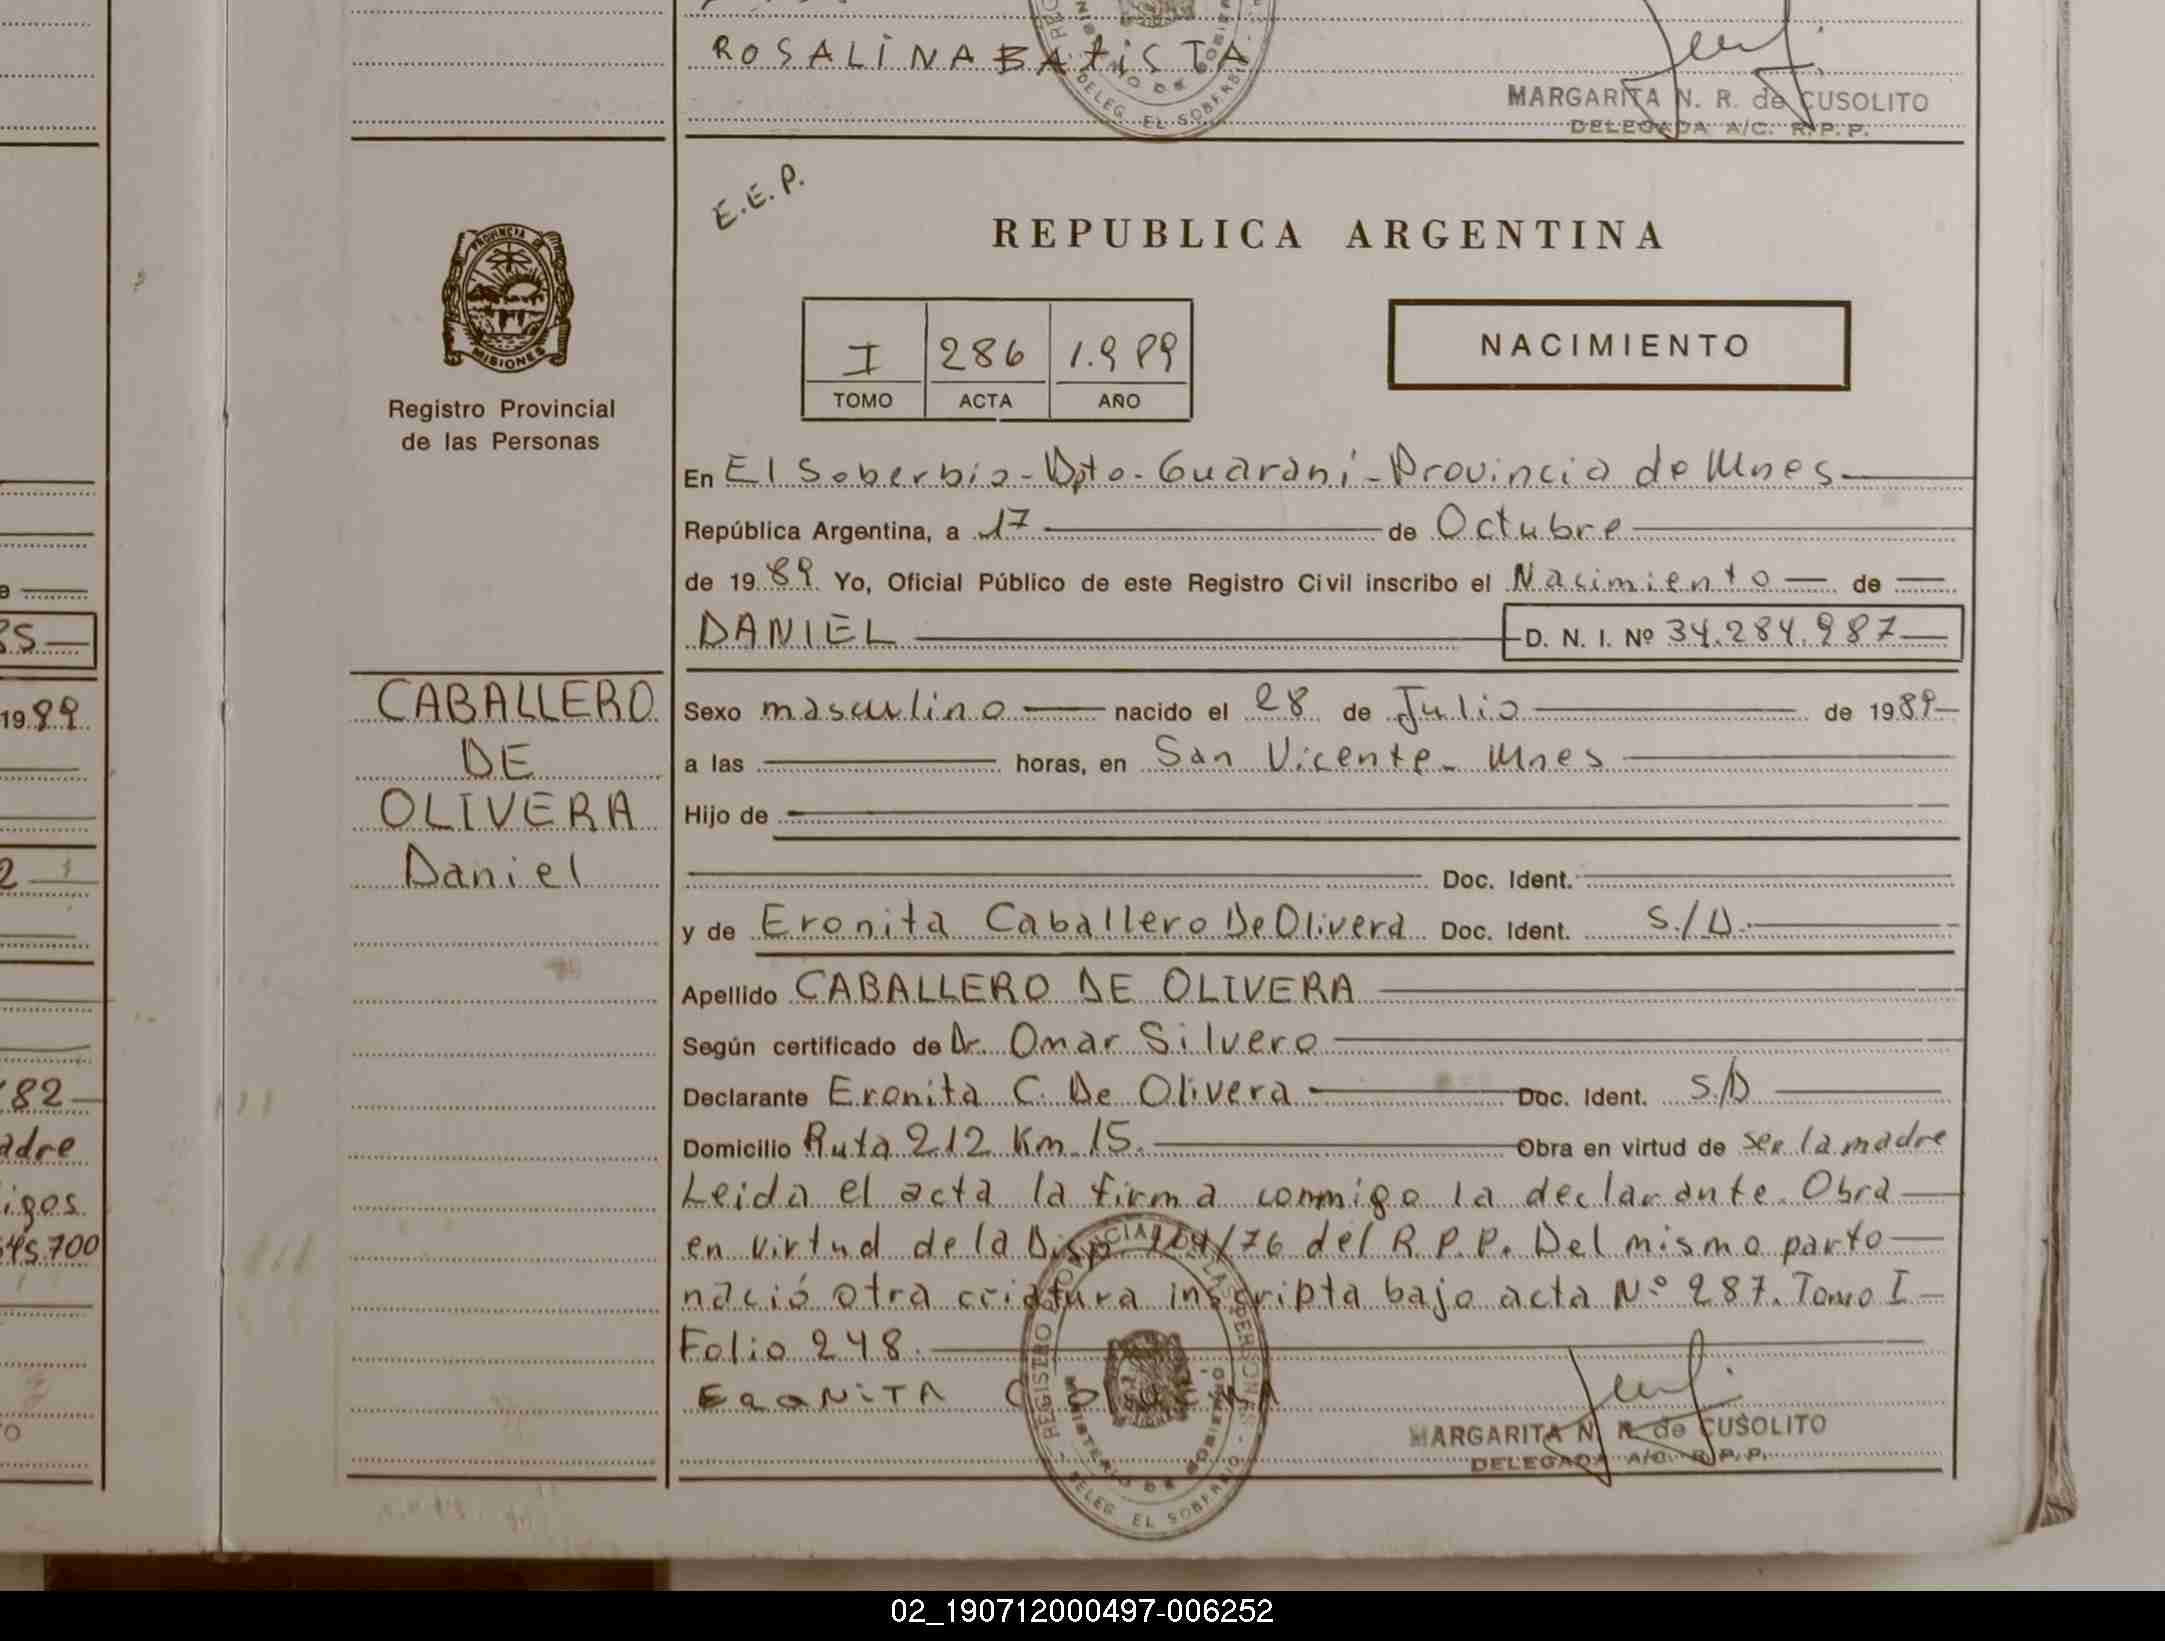 ROSALINA BATISTA
DELEG. EL SOBERBIO
MARGARITA N. R. de CUSOLITO
DELEGADA A/C. R.P.P.
E.E.P.
REPUBLICA ARGENTINA
PROVINCIA DE
MISIONES
Registro Provincial
de las Personas
I 286 1.989
TOMO ACTA AÑO
NACIMIENTO
En El Soberbio - Dpto - Guaraní - Provincia de Mnes
República Argentina, a 17 de Octubre
de 19 89 Yo, Oficial Público de este Registro Civil inscribo el Nacimiento de
DANIEL D. N. I. Nº 34.284.987
CABALLERO
DE
OLIVERA
Daniel
Sexo masculino nacido el 28 de Julio de 1989
a las horas, en San Vicente - Mnes
Hijo de
Doc. Ident.
y de Eronita Caballero De Olivera Doc. Ident. S/D.
Apellido CABALLERO DE OLIVERA
Según certificado de Dr. Omar Silvero
Declarante Eronita C. De Olivera Doc. Ident. S/D
Domicilio Ruta 212 Km 15. Obra en virtud de ser la madre
Leida el acta la firma conmigo la declarante. Obra
en virtud de la Disp /76 del R.P.P. Del mismo parto
nació otra criatura inscripta bajo acta Nº 287. Tomo I
Folio 248.
ERONITA C D
REGISTRO PROVINCIAL DE LAS PERSONAS
MINISTERIO DE GOBIERNO
DELEG. EL SOBERBIO
MARGARITA N. R. de CUSOLITO
DELEGADA A/C. R.P.P.
35
1989
82
adre
igos
45.700
02_190712000497-006252